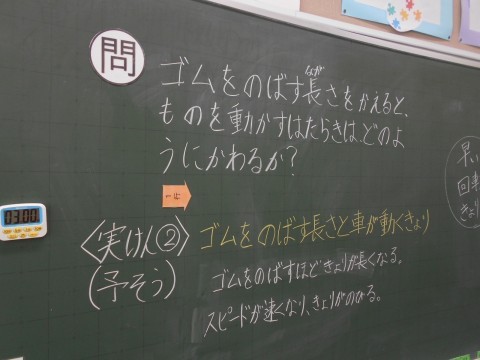 問
ゴムをのばす長さをかえると、
なが
ものを動かすはたらきは、どのよ
うにかわるか?
03:00
〈実けん②〉ゴムをのばす長さと車が動くきょり
(予そう)
ゴムをのばすほどきょりが長くなる。
スピードが速くなり、きょりがのびる。
早い
回車
きょり